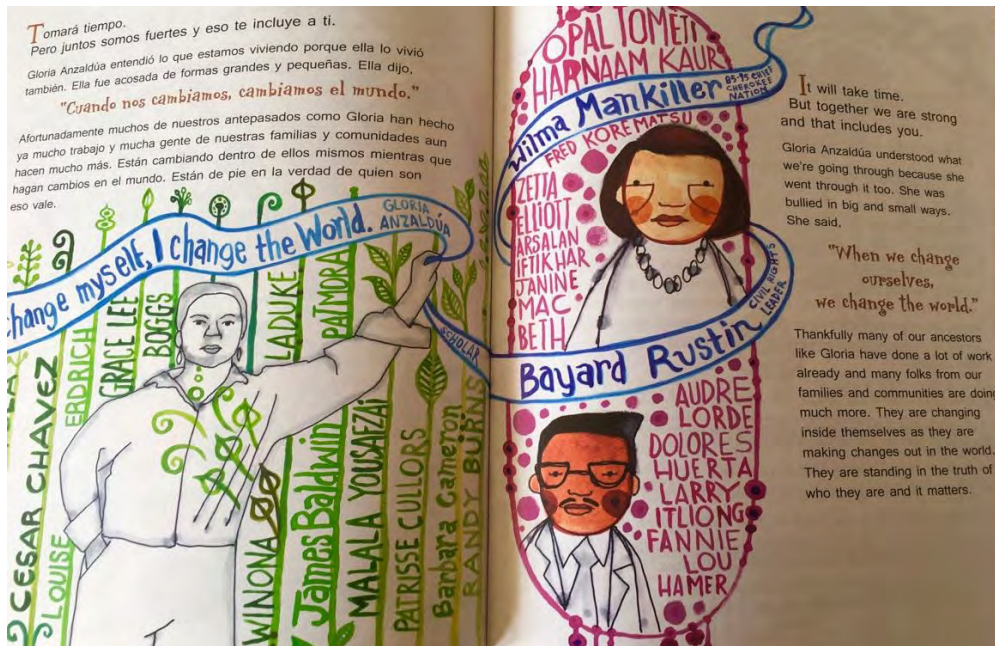 Tomará tiempo.
Pero juntos somos fuertes y eso te incluye a ti.
Gloria Anzaldúa entendió lo que estamos viviendo porque ella lo vivió
también. Ella fue acosada de formas grandes y pequeñas. Ella dijo,
"Cuando nos cambiamos, cambiamos el mundo."
Afortunadamente muchos de nuestros antepasados como Gloria han hecho
ya mucho trabajo y mucha gente de nuestras familias y comunidades aun
hacen mucho más. Están cambiando dentro de ellos mismos mientras que
hagan cambios en el mundo. Están de pie en la verdad de quien son
eso vale.
change myself, I change the World.
GLORIA
ANZALDÚA
SCHOLAR
CESAR CHAVEZ
LOUISE
ERDRICH
GRACE LEE
BOGGS
WINONA
LADUKE
James Baldwin
PAT MORA
MALALA YOUSAFZAI
PATRISSE CULLORS
Barbara Cameron
RANDY BURNS
OPAL TOMETI
HARNAAM KAUR
Wilma Mankiller
85-95 CHIEF
CHEROKEE
NATION
FRED KOREMATSU
ZETTA
ELLIOTT
ARSALAN
IFTIKHAR
JANINE
MAC
BETH
Bayard Rustin
CIVIL RIGHTS
LEADER
AUDRE
LORDE
DOLORES
HUERTA
LARRY
ITLIONG
FANNIE
LOU
HAMER
It will take time.
But together we are strong
and that includes you.
Gloria Anzaldúa understood what
we're going through because she
went through it too. She was
bullied in big and small ways.
She said,
"When we change
ourselves,
we change the world."
Thankfully many of our ancestors
like Gloria have done a lot of work
already and many folks from our
families and communities are doing
much more. They are changing
inside themselves as they are
making changes out in the world.
They are standing in the truth of
who they are and it matters.